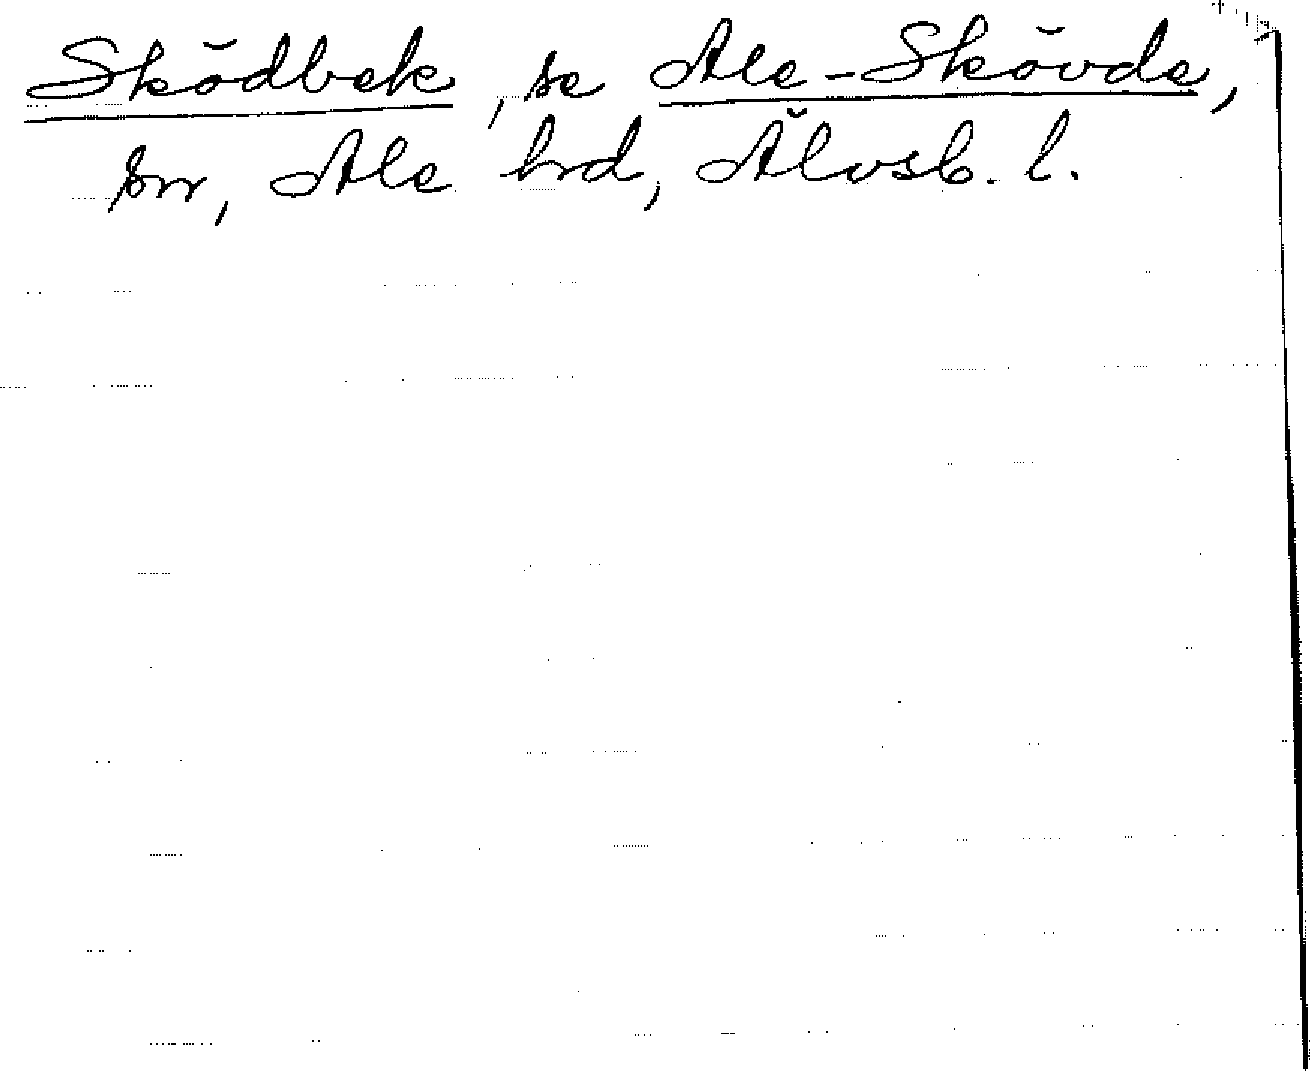 Sködbek, se Ale-Skövde,
sn, Ale hrd, Älvsb. l.